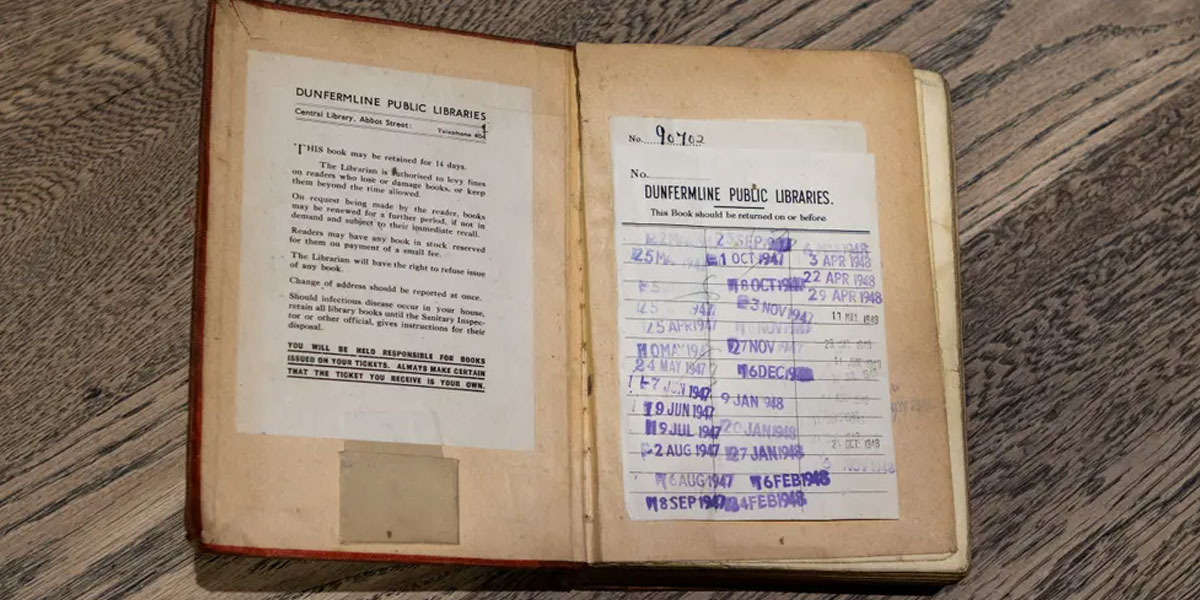 DUNFERMLINE PUBLIC LIBRARIES
Central Library, Abbot Street: Telephone
THIS book may be retained for 14 days.
The Librarian is authorised to levy fines
on readers who lose or damage books, or keep
them beyond the time allowed.
On request being made by the reader, books
may be renewed for a further period, if not in
demand and subject to their immediate recall.
Readers may have any book in stock reserved
for them on payment of a small fee.
The Librarian will have the right to refuse issue
of any book.
Change of address should be reported at once.
Should infectious disease occur in your house,
retain all library books until the Sanitary Inspec-
tor or other official, gives instructions for their
disposal.
YOU WILL BE HELD RESPONSIBLE FOR BOOKS
ISSUED ON YOUR TICKETS. ALWAYS MAKE CERTAIN
THAT THE TICKET YOU RECEIVE IS YOUR OWN.
No. 90702
No.
DUNFERMLINE PUBLIC LIBRARIES.
This Book should be returned on or before
25 APR 1947
MAY 1947
24 MAY 1947
7 JUN 1947
19 JUN 1947
9 JUL 1947
2 AUG 1947
6 AUG 1947
8 SEP 1947
23 SEP
1 OCT 1947
8 OCT
3 NOV 1947
NOV
27 NOV
6 DEC
9 JAN 948
20 JAN 1948
27 JAN 1948
6 FEB 1948
4 FEB 1948
1948
3 APR 1948
22 APR 1948
29 APR 1948
MAY 1948
OCT 1948
NOV 1948